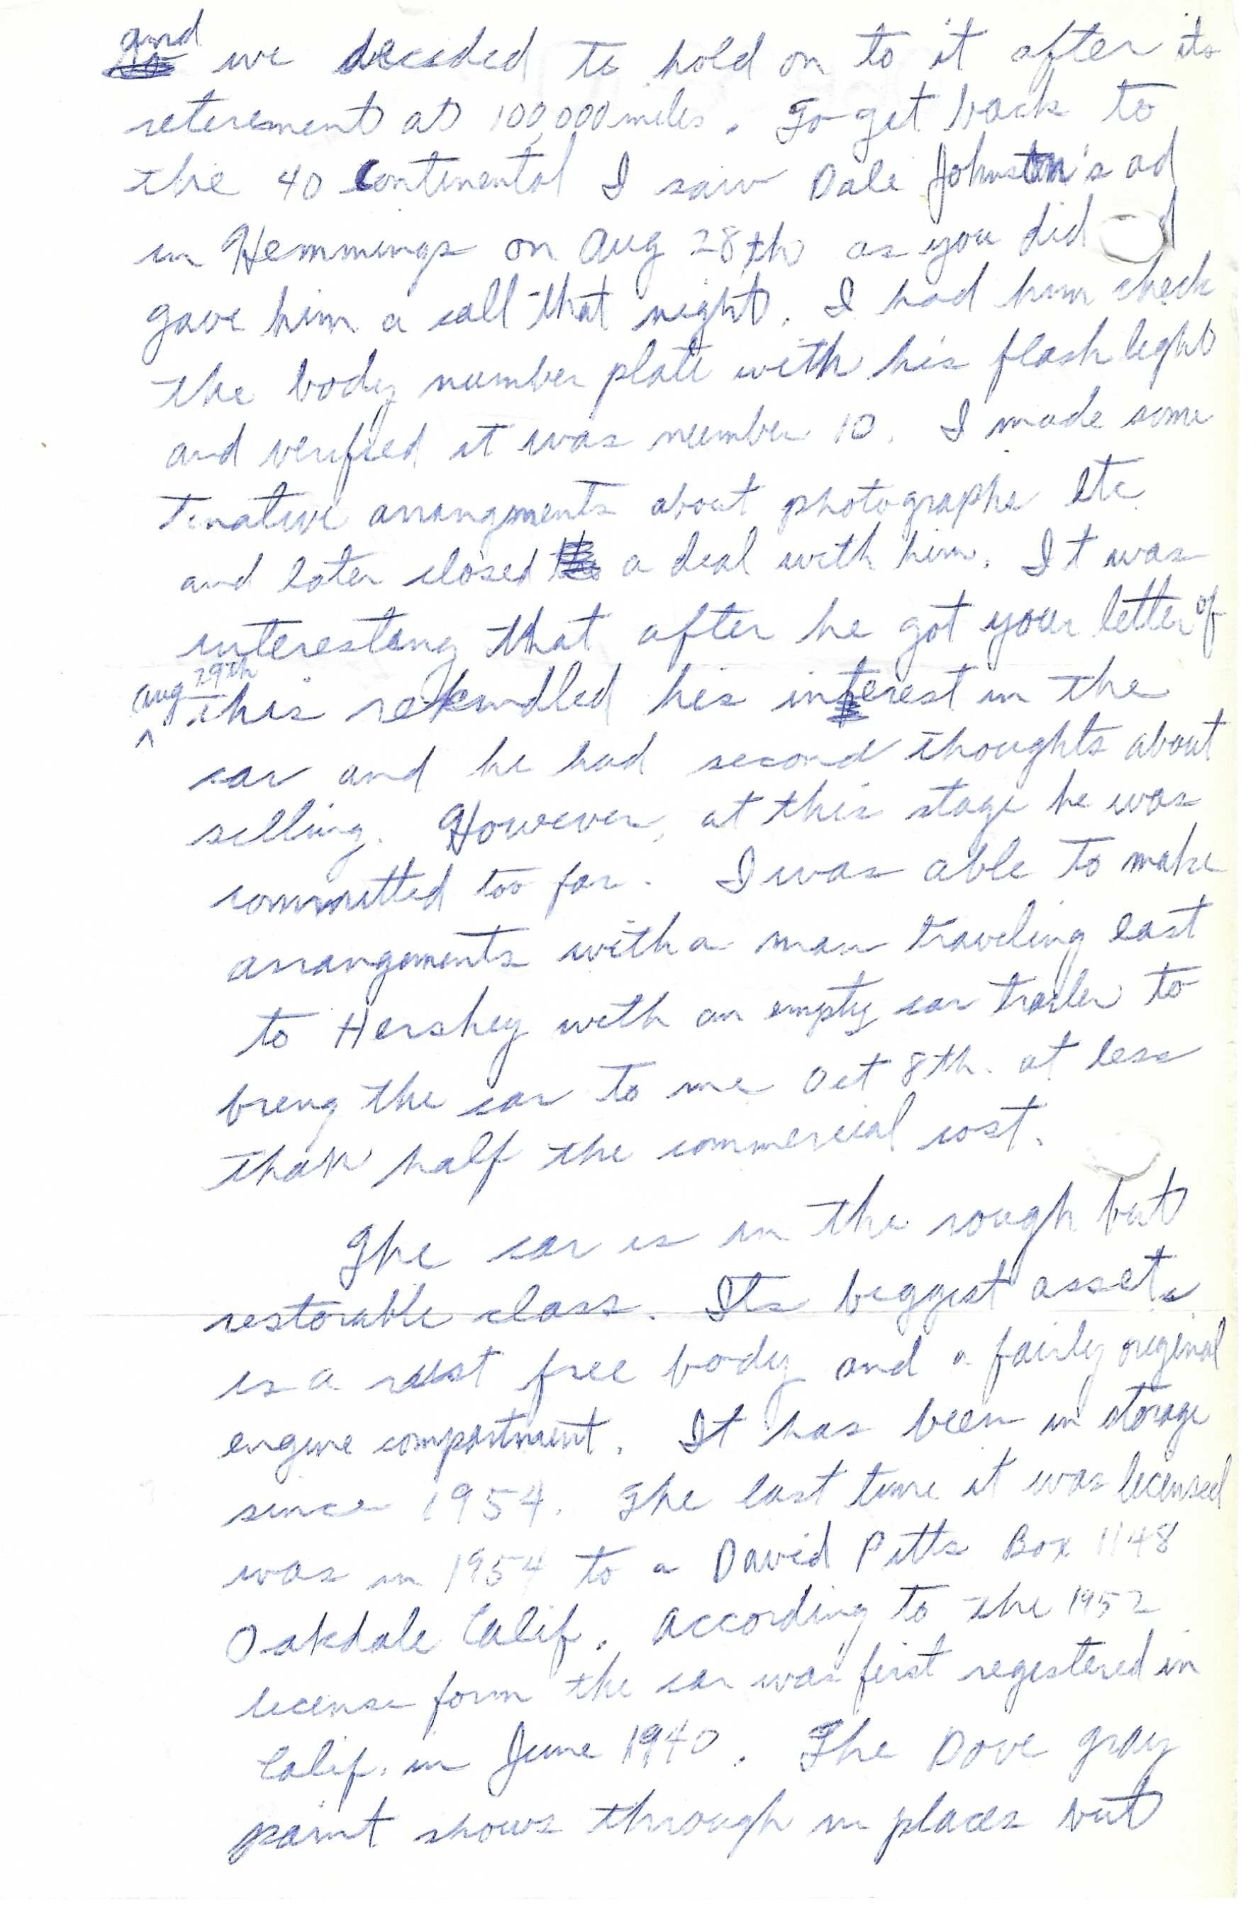 and we decided to hold on to it after its
retirement at 100,000 miles. To get back to
the 40 Continental I saw Dale Johnston's ad
in Hemmings on Aug 28th as you did
gave him a call that night. I had him check
the body number plate with his flash light
and verified it was number 10. I made some
Tenative arrangments about photographs etc
and later closed a deal with him. It was
interesting that after he got your letter of
Aug 29th this rekindled his interest in the
car and he had second thoughts about
selling. However, at this stage he was
committed too far. I was able to make
arrangements with a man traveling east
to Hershey with an empty car trailer to
bring the car to me Oct 8th. at less
than half the commercial cost.
The car is in the rough but
restorable class. Its biggest assets
is a rust free body and a fairly original
engine compartment. It has been in storage
since 1954. The last time it was licensed
was in 1954 to a David Pitts Box 1148
Oakdale Calif. According to the 1952
license form the car was first registered in
Calif. in June 1940. The Dove gray
paint shows through in places but